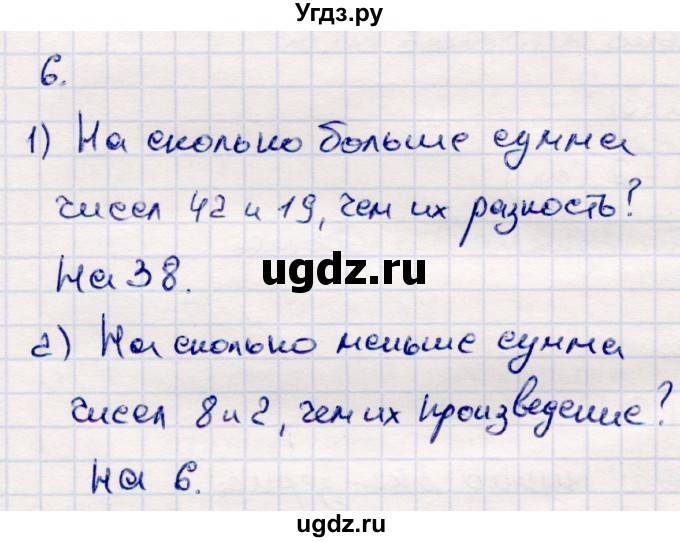 Угдз.ру
6.
1) На сколько больше сумма
чисел 42 и 19, чем их разность?
На 38.
ugdz.ru
2) На сколько меньше сумма
чисел 8 и 2, чем их произведение?
На 6.
ugdz.ru